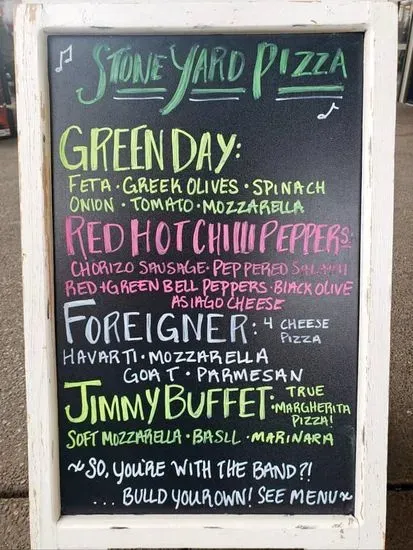 STONE YARD PIZZA
GREEN DAY:
FETA · GREEK OLIVES · SPINACH
ONION · TOMATO · MOZZARELLA
RED HOT CHILLI PEPPERS:
CHORIZO SAUSAGE · PEPPERED SALAMI
RED + GREEN BELL PEPPERS · BLACK OLIVE
ASIAGO CHEESE
FOREIGNER: 4 CHEESE
PIZZA
HAVARTI · MOZZARELLA
GOAT · PARMESAN
JIMMY BUFFET: TRUE
· MARGHERITA
PIZZA!
SOFT MOZZARELLA · BASIL · MARINARA
~ SO, YOU'RE WITH THE BAND?!
... BUILD YOUR OWN! SEE MENU ~